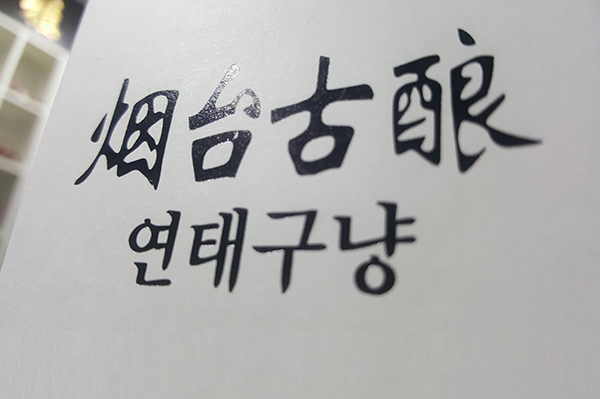 烟台古酿
연태구냥